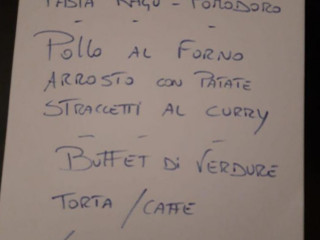 PASTA RAGÙ - POMODORO
- - -
POLLO AL FORNO
ARROSTO CON PATATE
STRACCETTI AL CURRY
- -
BUFFET DI VERDURE
TORTA / CAFFE